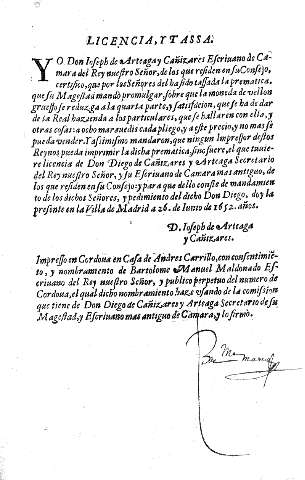 LICENCIA, Y TASSA.
YO Don Ioseph de Arteaga y Cañizares Escriuano de Camara
del Rey nuestro Señor, de los que residen en su Consejo,
certifico, que por los Señores del ha sido tassada la prematica,
que su Magestad mandò promulgar, sobre que la moneda de vellon
gruesso se reduzga a la quarta parte, y satisfacion, que se ha de dar
de la Real hazienda a los particulares, que se hallaren con ella, y
otras cosas: a ocho marauedis cada pliego, y a este precio, y no mas se
pueda vender. Y assimismo mandaron, que ningun Impressor destos
Reynos pueda imprimir la dicha prematica, sino fuere, el que tuuiere
licencia de Don Diego de Cañizares y Arteaga Secretario
del Rey nuestro Señor, y su Escriuano de Camara mas antiguo, de
los que residen en su Consejo: y para que dello conste de mandamiento
de los dichos Señores, y pedimiento del dicho Don Diego, doy la
presente en la Villa de Madrid a 26. de Iunio de 1652. años.
D. Ioseph de Arteaga
y Cañizares.
Impresso en Cordoua en Casa de Andres Carrillo, con consentimiento,
y nombramiento de Bartolome Manuel Maldonado Escriuano
del Rey nuestro Señor, y publico perpetuo del numero de
Cordoua, el qual dicho nombramiento haze vsando de la comission
que tiene de Don Diego de Cañizares y Arteaga Secretario de su
Magestad, y Escriuano mas antiguo de Camara, y lo firmò.